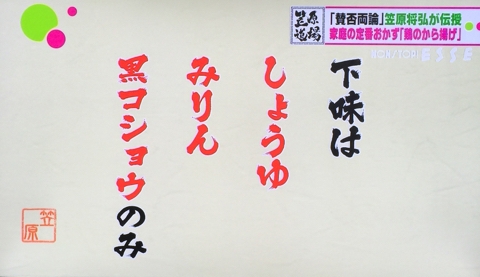 「賛否両論」笠原将弘が伝授
家庭の定番おかず「鶏のから揚げ」
笠原道場
NONSTOP! ESSE
下味は
しょうゆ
みりん
黒コショウのみ
笠原